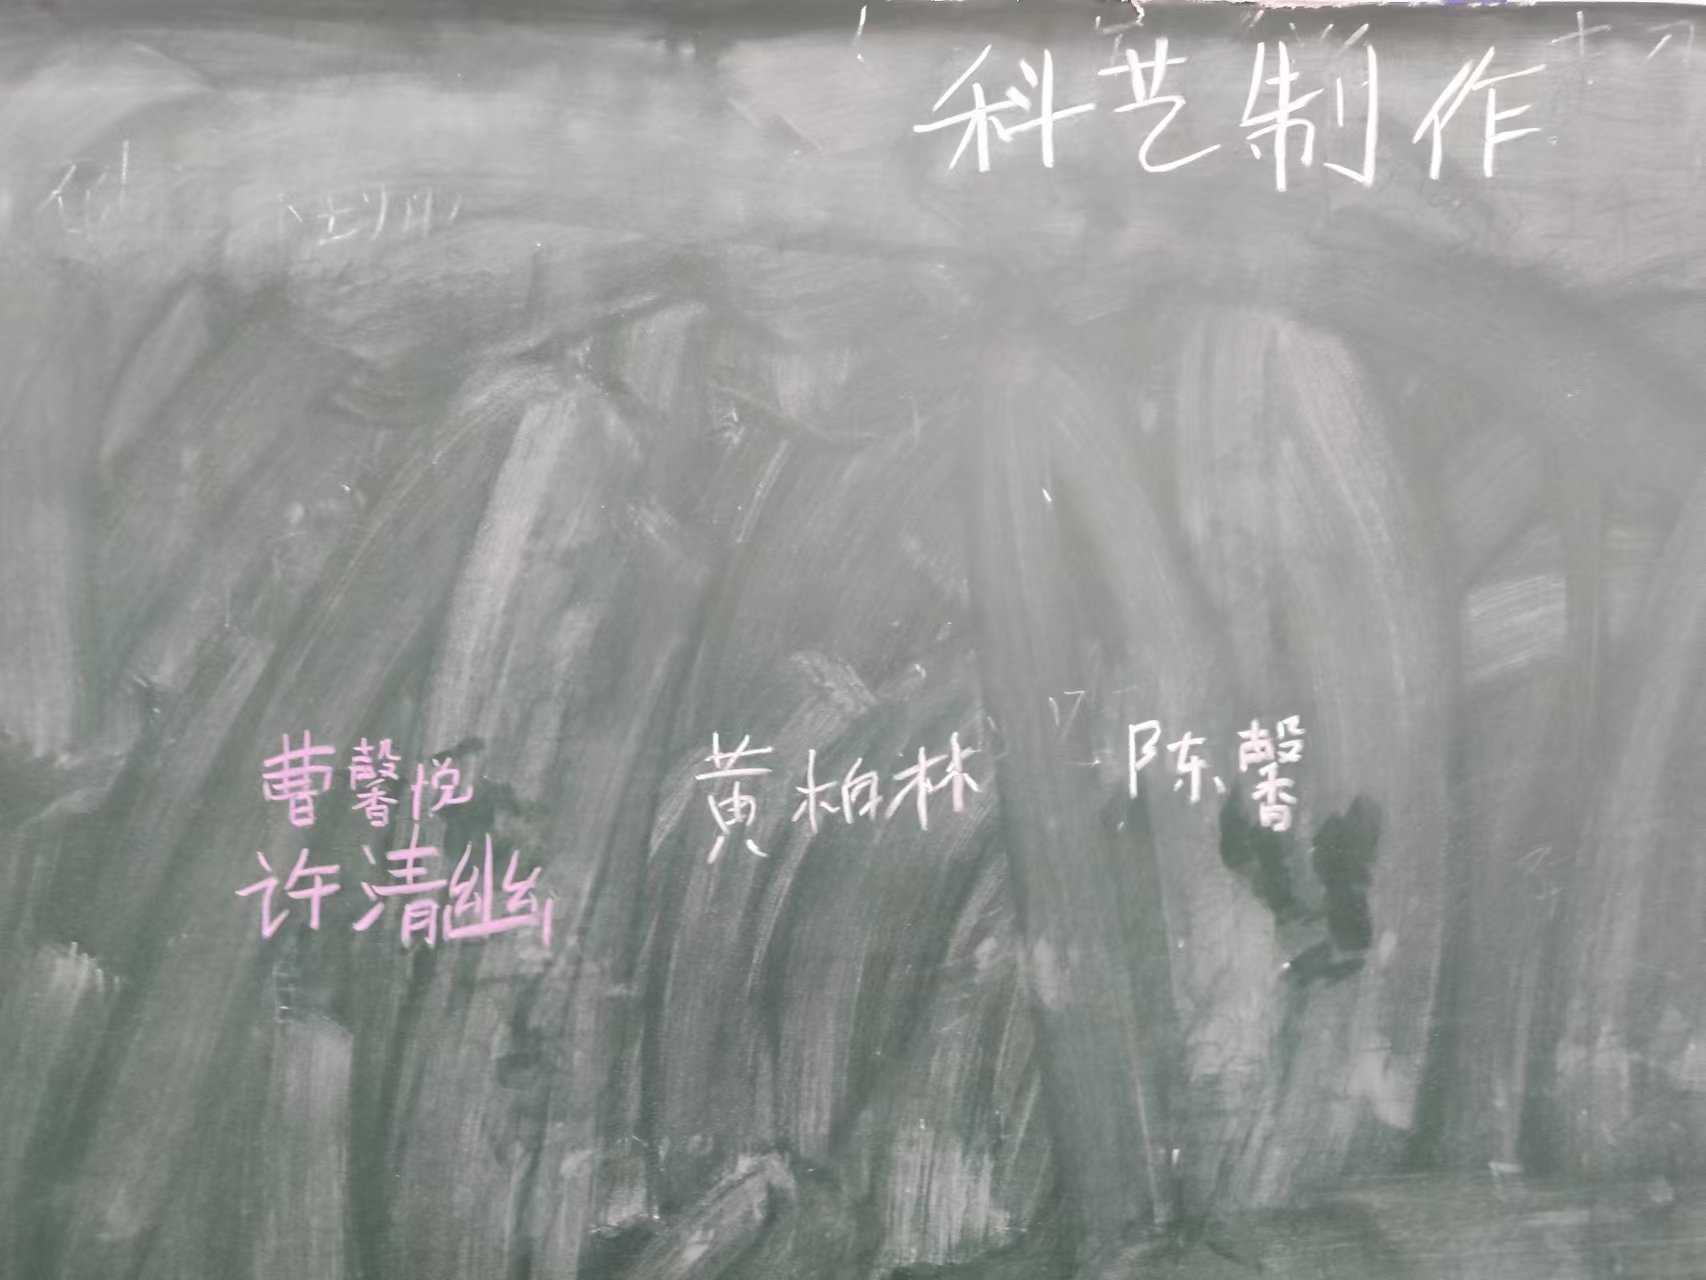 科艺制作
曹馨悦 黄柏林 陈馨
许清幽